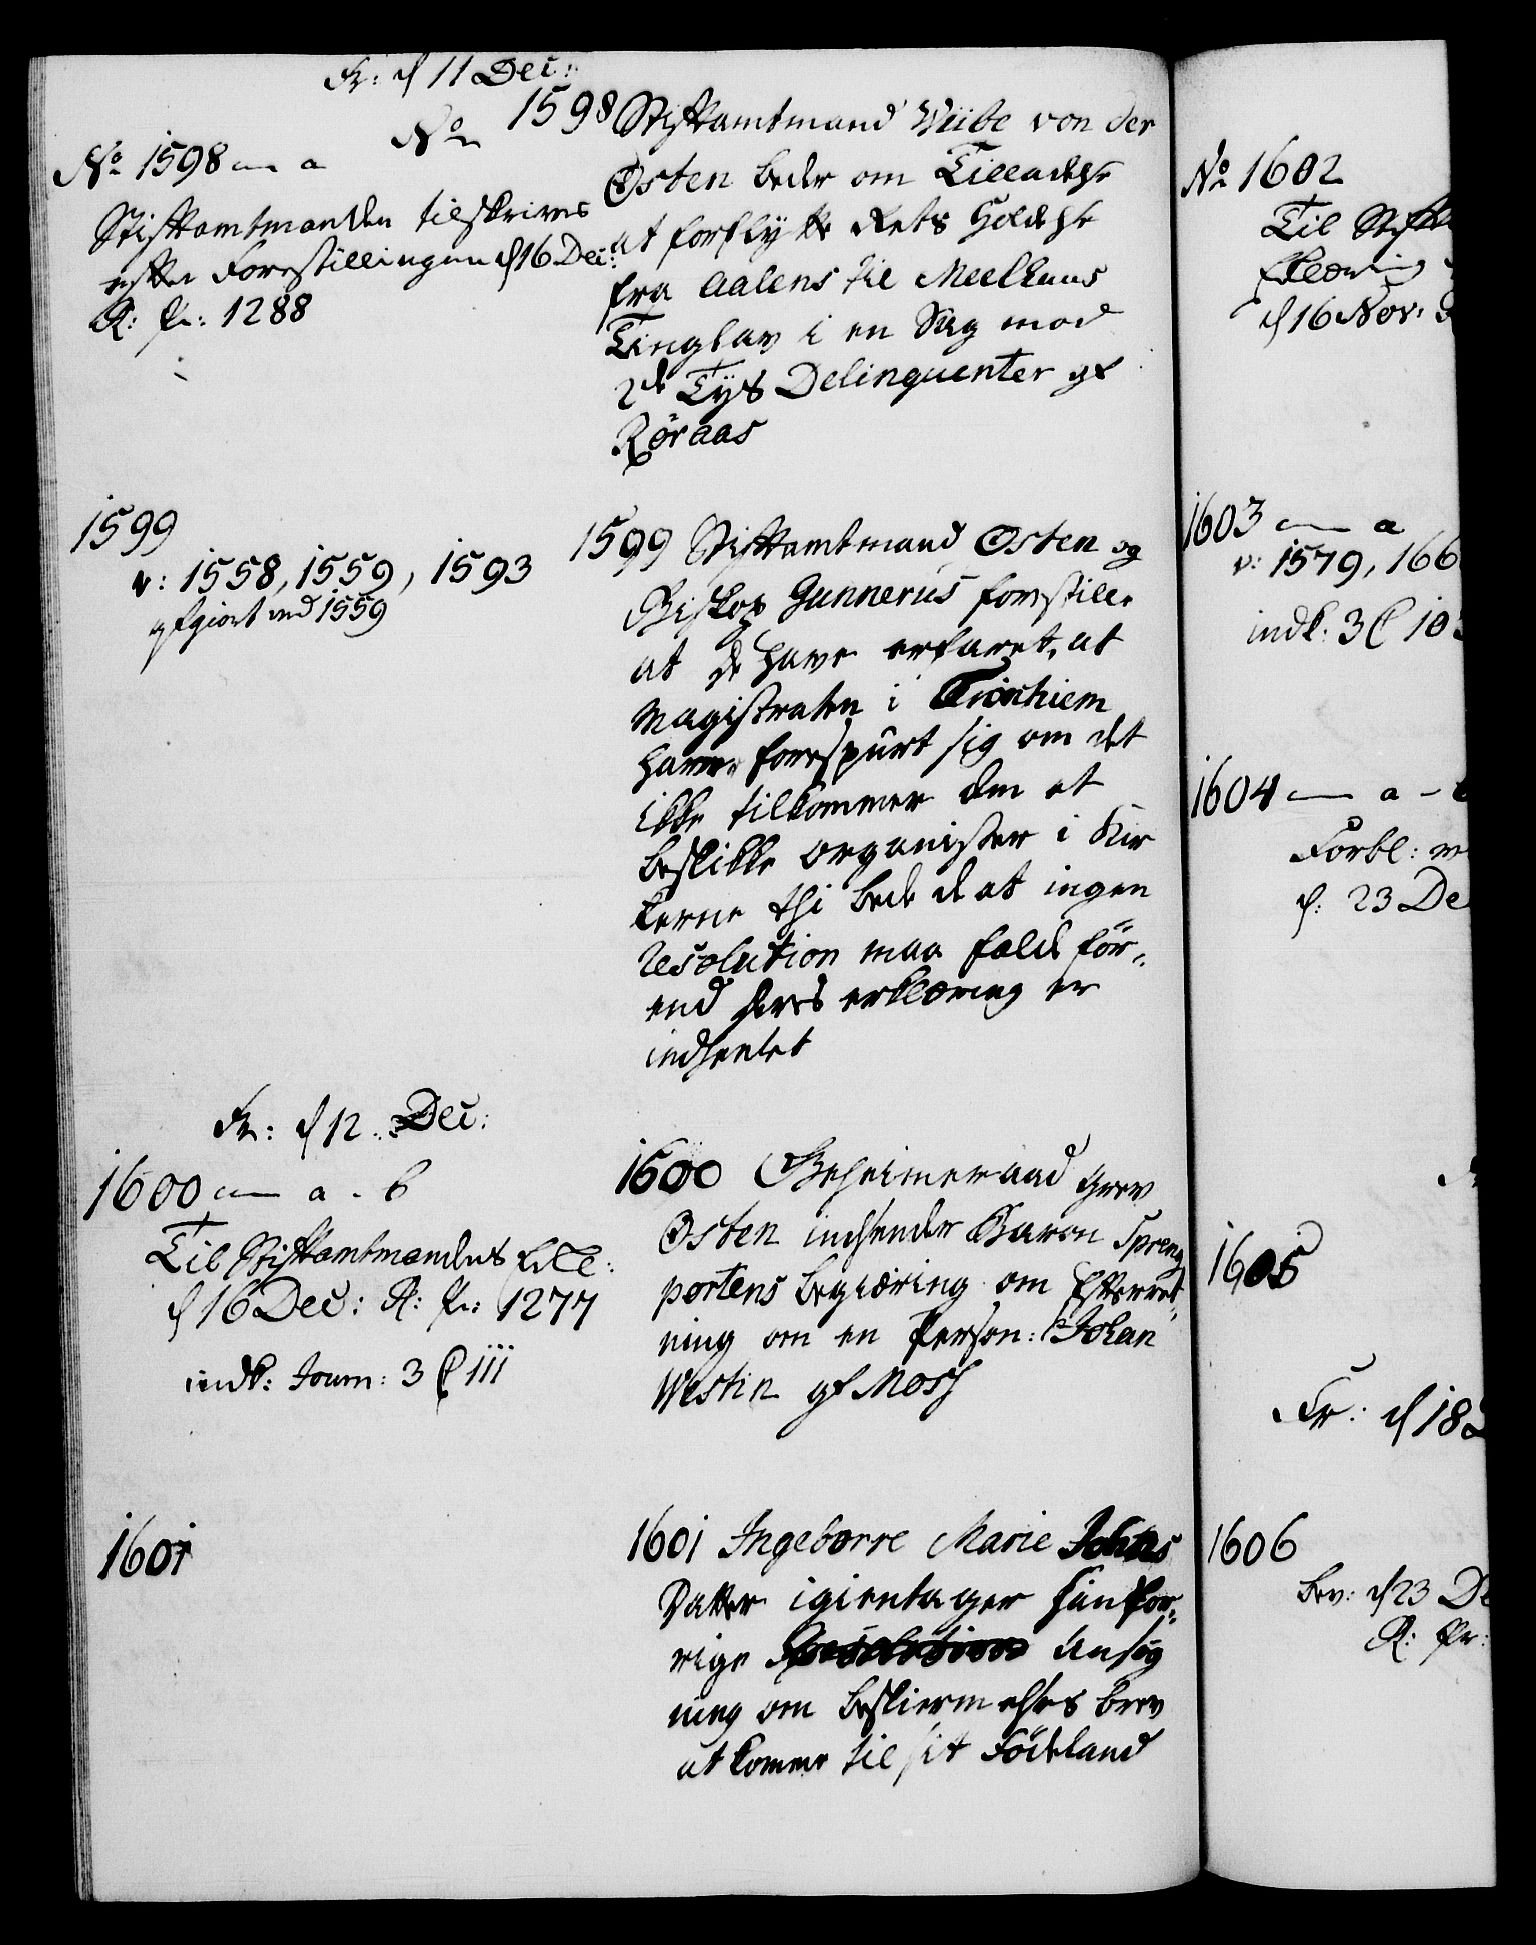 Fr: d 11 Dec:
No 1598 a
Stiftamtmanden tilskrives
efter Forestillingen d 16 Dec:
R: Pr: 1288
No 1598 Stiftamtmand Wibe von der
Osten beder om Tilladelse
at forflytte Rets Holdelse
fra Aalens til Meelhuus
Tinglav i en Sag mod
2de Tyvs Delinquenter af
Röraas
1599
v: 1558, 1559, 1593
afgiort ved 1559
1599 Stiftamtmand Osten og
Biskop Gunnerus forestiller
at de have erfaret, at
Magistraten i Tronhiem
haver forespurt sig om det
ikke tilkommer dem at
beskikke organister i Kir
kerne thi bede de at ingen
resolution maa falde för-
end deres erklæring er
indhentet
Fr: d 12 Dec:
1600 a - b
Til Stiftamtmandens Erkl:
d 16 Dec: R: Pr: 1277
indk: Journ: 3 P 111
1600 Geheimeraad Grev
Osten indsender Baron Spreng
portens begiæring om Efterret-
ning om en Person: Johan
Westin af Moss
1601
1601 Ingeborre Marie Johns
Datter igientager sin for-
rige Ansög
ning om beskiermelses brev
at komme til sit Födeland
No 1602
Til Stift
klæring
d 16 Nov:
1603 a
v: 1579, 166
indk: 3 P 10
1604 a -
Forbl:
d: 23 De
1605
Fr: d 18
1606
bev: d 23 De
R: Pr: